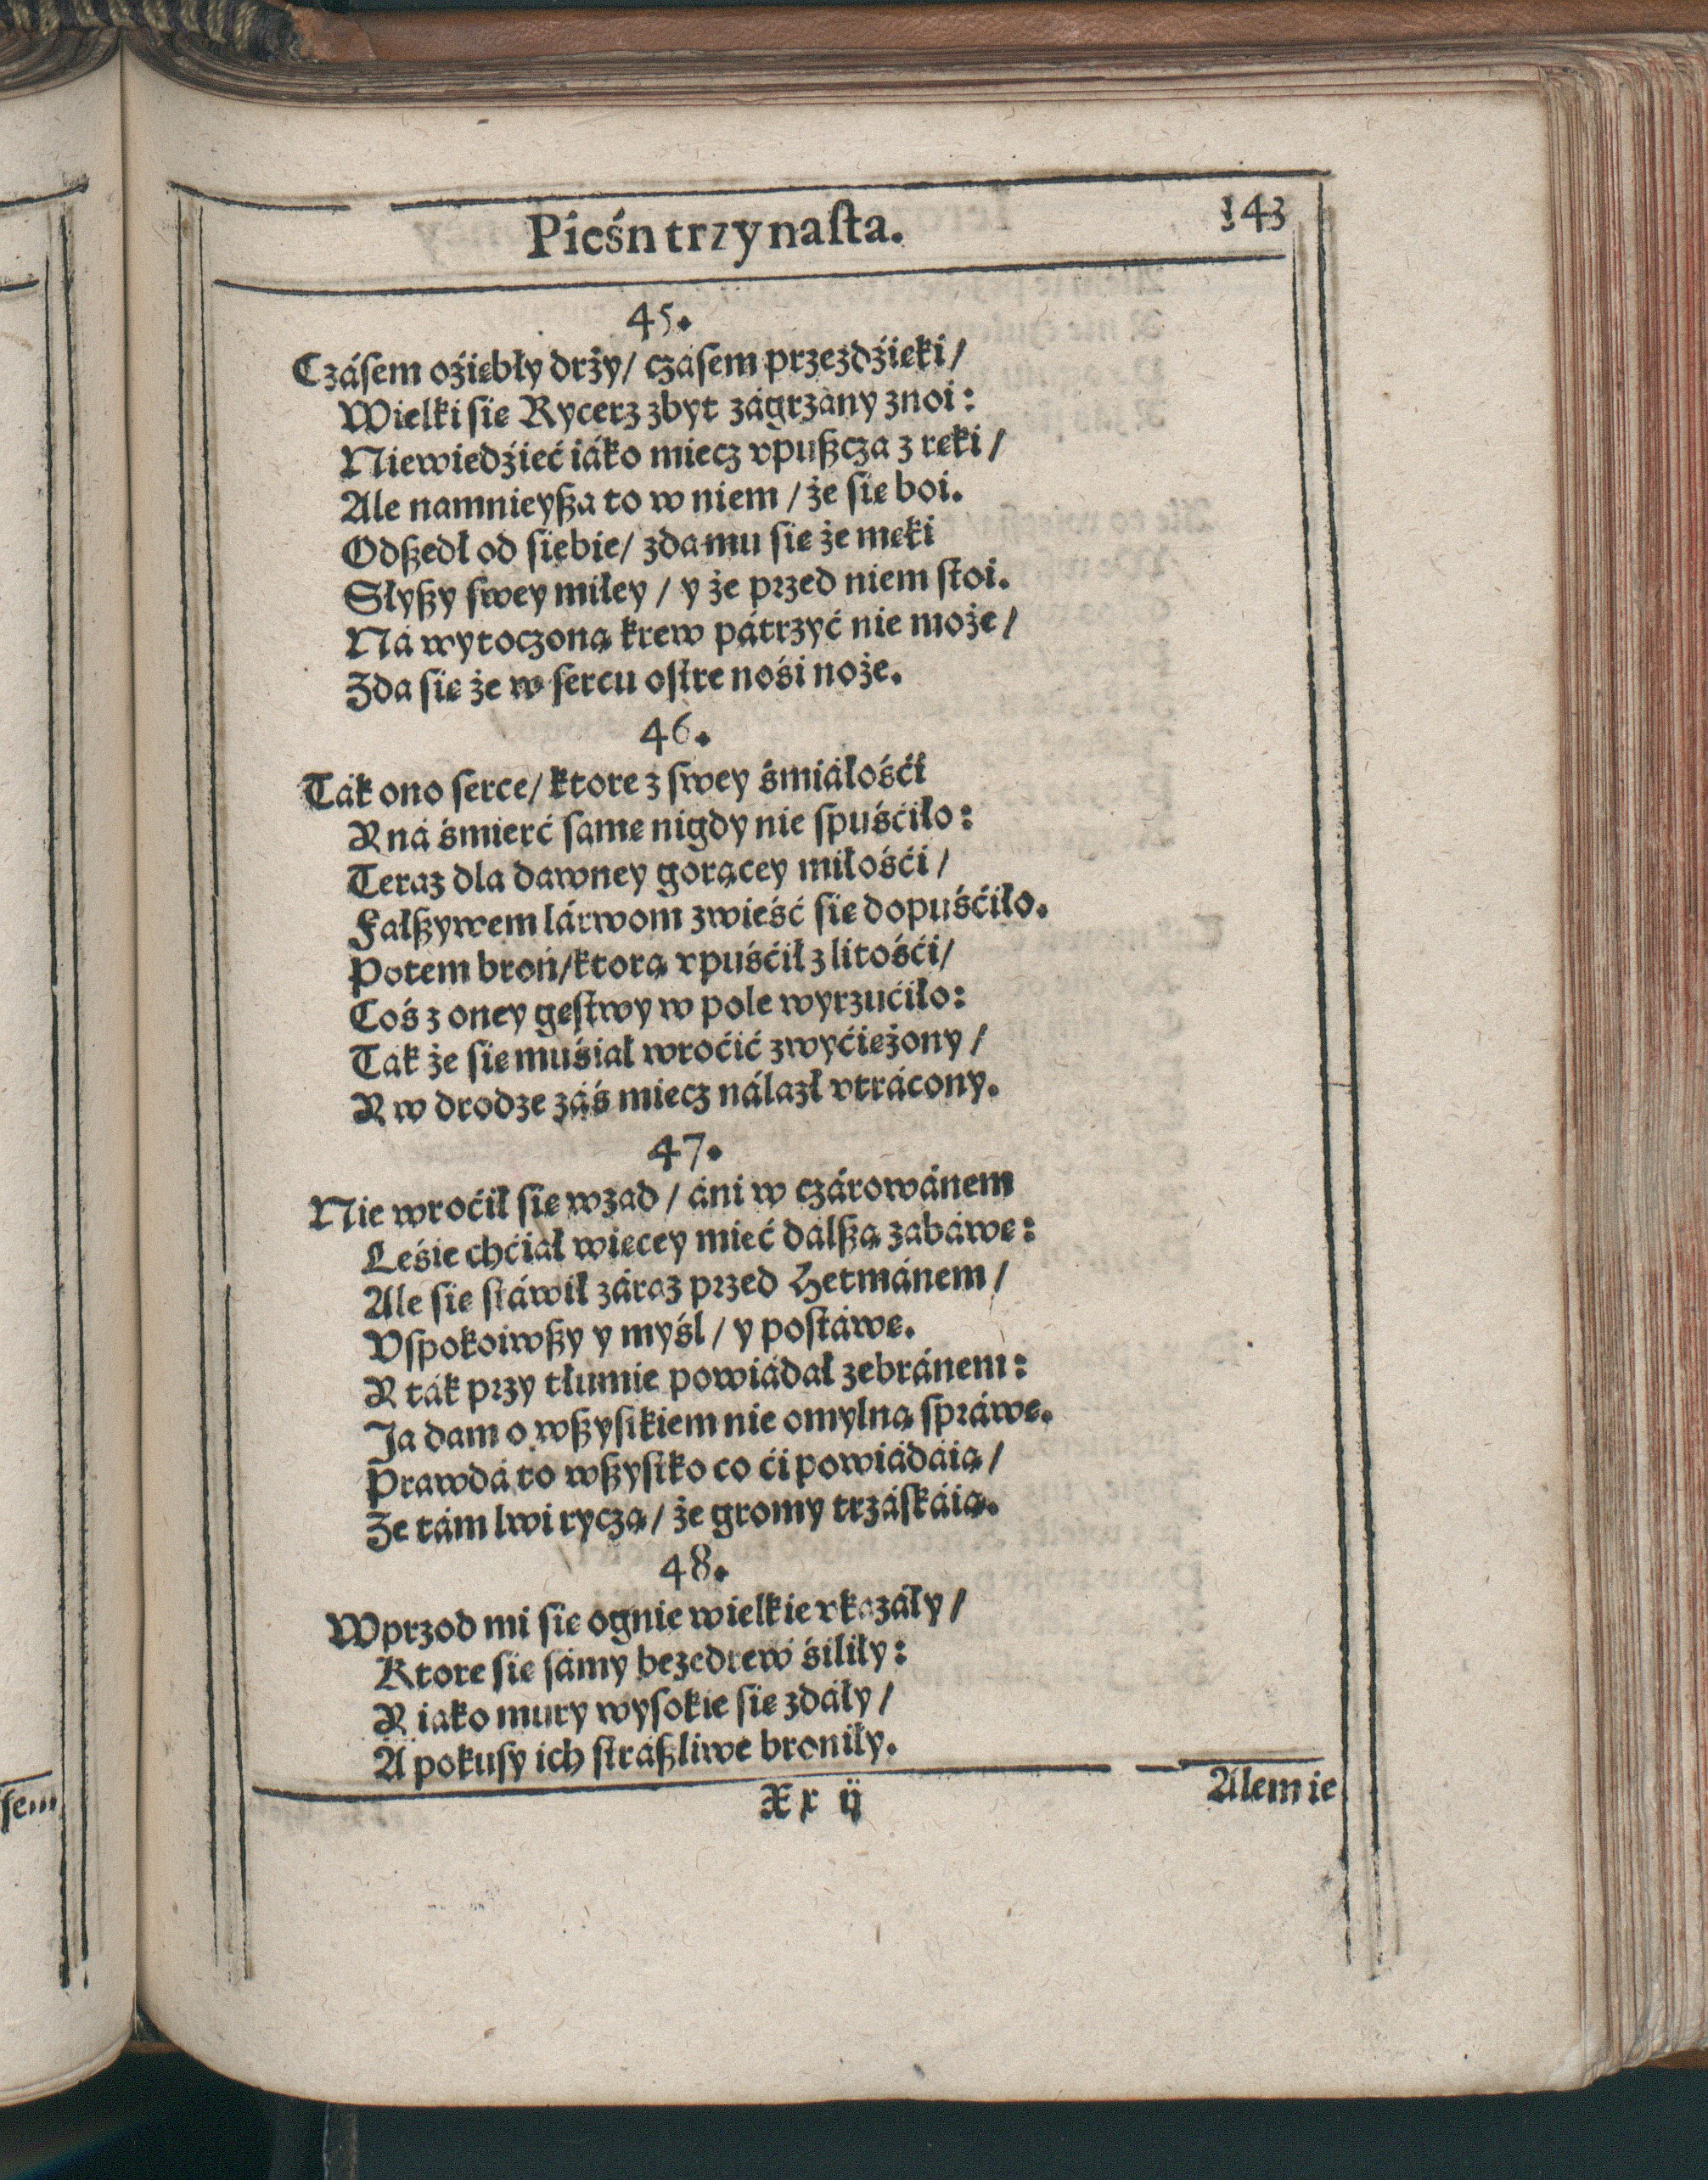 Pieśń trzynaſta.
143
45.
Czáſem oźiębły drży/ czáſem przezdźięki/
Wielki ſię Rycerz zbyt zágrzány znoi:
Niewiedźieć iáko miecz vpuſzcza z ręki/
Ale namnieyſza to w niem/ że ſię boi.
Odſzedł od ſiebie/ zda mu ſię że męki
Słyſzy ſwey miłey/ y że przed niem ſtoi.
Ná wytoczoną krew pátrzyć nie może/
Zda ſię że w ſercu oſtre nośi noże.
46.
Ták ono ſerce/ ktore z ſwey śmiáłośći
Y ná śmierć ſamę nigdy nie ſpuśćiło:
Teraz dla dawney gorącey miłośći/
Fałſzywem lárwom zwieść ſię dopuśćiło.
Potem broń/ktorą vpuśćił z litośći/
Coś z oney gęſtwy w pole wyrzućiło:
Ták że ſię muśiał wroćić zwyćiężony/
Y w drodze záś miecz nálazł vtrácony.
47.
Nie wroćił ſię wzad/ áni w czárowánem
Leśie chćiał więcey mieć dálſzą zabáwę:
Ale ſię ſtáwił záraz przed Hetmánem/
Vſpokoiwſzy y myśl/ y poſtáwę.
Y ták przy tłumie powiádał zebránem:
Ja dam o wſzyſtkiem nie omylną ſpráwę.
Prawdá to wſzyſtko co ći powiádáią/
Że tám lwi ryczą/ że gromy trzáſkáią.
48.
Wprzod mi ſię ognie wielkie vkazáły/
Ktore ſię ſámy bezedrew śiliły:
Y iako mury wyſokie ſię zdáły/
A pokuſy ich ſtráſzliwe broniły.
Xx ij
Alemię
ſem